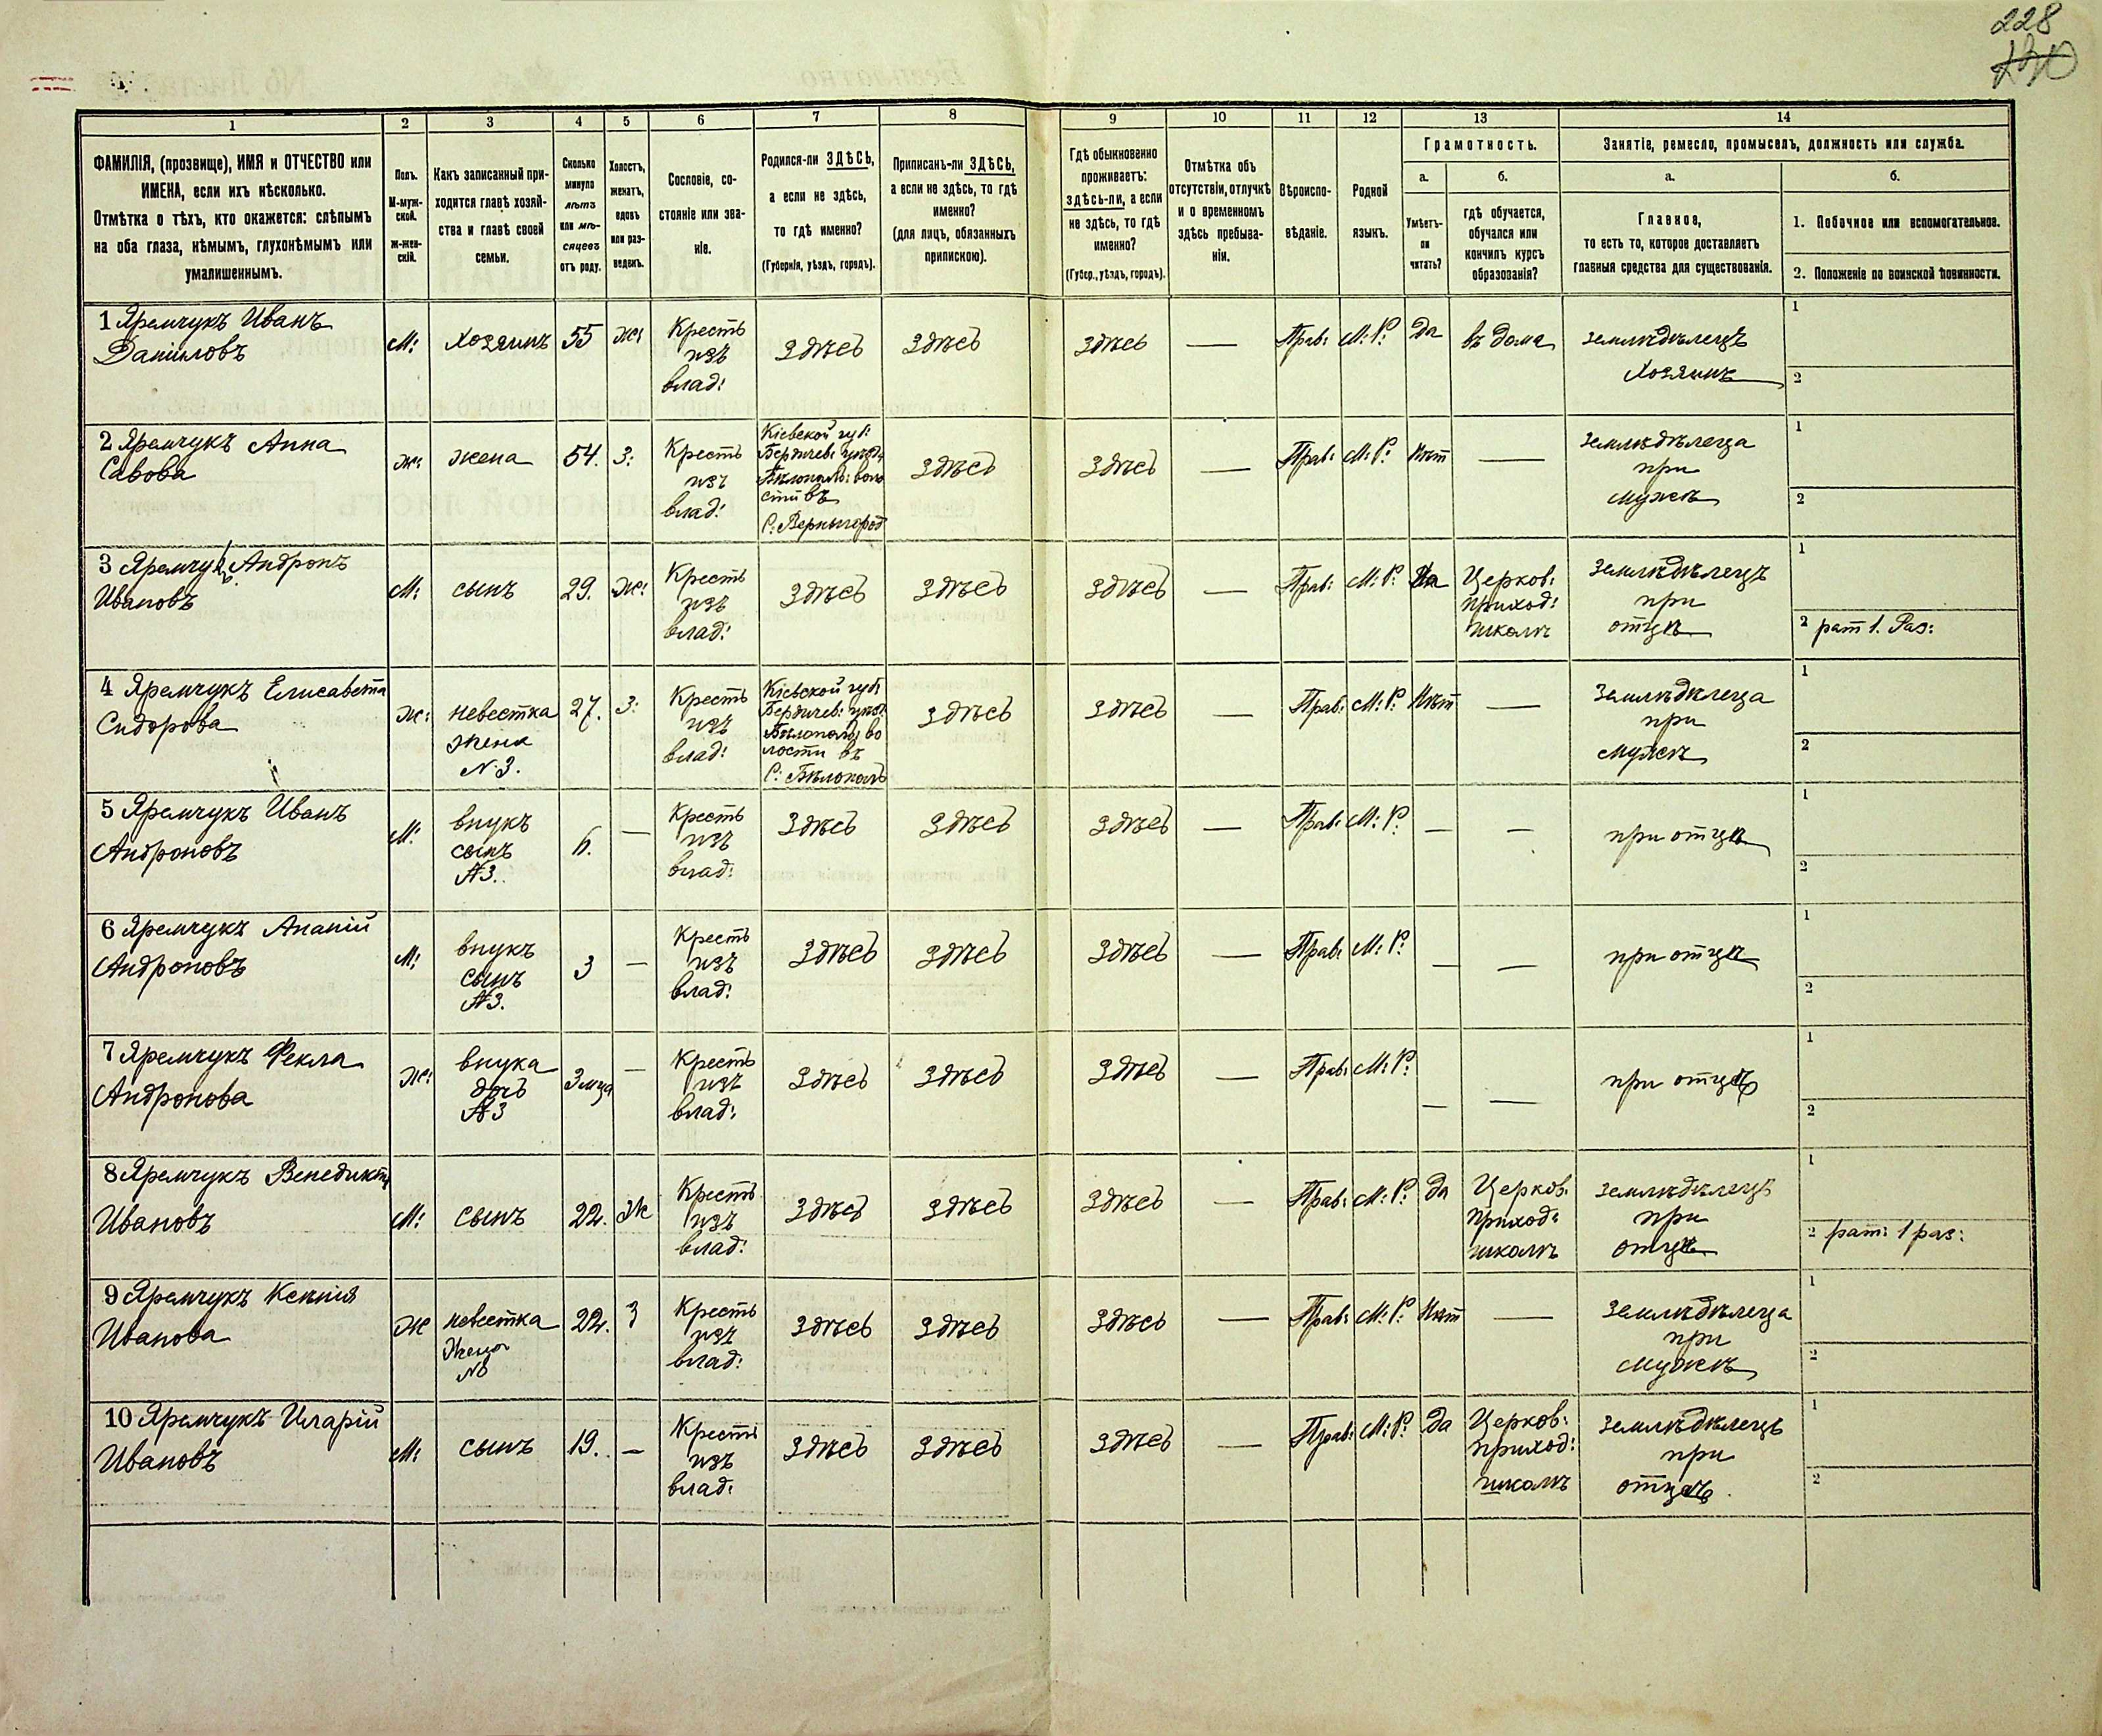 228
1
2
3
4
5
6
7
8
9
10
11
12
13
14
ФАМИЛІЯ, (прозвище), ИМЯ и ОТЧЕСТВО или
ИМЕНА, если ихъ нѣсколько.
Отмѣтка о тѣхъ, кто окажется: слѣпымъ
на оба глаза, нѣмымъ, глухонѣмымъ или
умалишеннымъ.
Полъ.
М-муж-
ской.
Ж-жен-
скій.
Какъ записанный при-
ходится главѣ хозяй-
ства и главѣ своей
семьи.
Сколько
минуло
лѣтъ
или мѣ-
сяцевъ
отъ роду.
Холостъ,
женатъ,
вдовъ
или раз-
веденъ.
Сословіе, со-
стояніе или зва-
ніе.
Родился-ли ЗДѢСЬ,
а если не здѣсь,
то гдѣ именно?
(Губернія, уѣздъ, городъ).
Приписанъ-ли ЗДѢСЬ,
а если не здѣсь, то гдѣ
именно?
(для лицъ, обязанныхъ
припискою).
Гдѣ обыкновенно
проживаетъ:
здѣсь-ли, а если
не здѣсь, то гдѣ
именно?
(Губер., уѣздъ, городъ).
Отмѣтка объ
отсутствіи, отлучкѣ
и о временномъ
здѣсь пребыва-
ніи.
Вѣроиспо-
вѣданіе.
Родной
языкъ.
Грамотность.
а.
Умѣетъ-
ли
читать?
б.
гдѣ обучается,
обучался или
кончилъ курсъ
образованія?
Занятіе, ремесло, промыселъ, должность или служба.
а.
Главное,
то есть то, которое доставляетъ
главныя средства для существованія.
б.
1. Побочное или вспомогательное.
2. Положеніе по воинской повинности.
1 Яремчукъ Иванъ
Даниловъ
М:
Хозяинъ
55
Ж:
Кресть
изъ
влад:
Здѣсь
Здѣсь
Здѣсь
—
Прав:
М: Р:
Да
въ дома
земледѣлецъ
Хозяинъ
1
2
2 Яремчукъ Анна
Савова
Ж:
жена
54.
З:
Кресть
изъ
влад:
Кіевской губ:
Бердичев: уѣзд:
Бѣлополь: воло
сти въ
С: Вернигород
Здѣсь
Здѣсь
—
Прав:
М: Р:
Нѣт
—
земледѣлеца
при
мужѣ
1
2
3 Яремчукъ Андронъ
Ивановъ
М:
сынъ
29.
Ж:
Кресть
изъ
влад:
Здѣсь
Здѣсь
Здѣсь
—
Прав:
М: Р:
Да
Церков:
приход:
школѣ
земледѣлецъ
при
отцѣ
1
2 рат 1. Раз:
4 Яремчукъ Елисавета
Сидорова
Ж:
невестка
жена
№ 3.
27.
З:
Кресть
изъ
влад:
Кіевской губ:
Бердичев: уѣзд:
Бѣлополь: во
лости въ
С: Бѣлополь
Здѣсь
Здѣсь
—
Прав:
М: Р:
Нѣт
—
земледѣлеца
при
мужѣ
1
2
5 Яремчукъ Иванъ
Андроновъ
М:
внукъ
сынъ
№3.
6.
—
Кресть
изъ
влад:
Здѣсь
Здѣсь
Здѣсь
—
Прав:
М: Р:
—
—
при отцѣ
1
2
6 Яремчукъ Ананій
Андроновъ
М:
внукъ
сынъ
№3.
3
—
Кресть
изъ
влад:
Здѣсь
Здѣсь
Здѣсь
—
Прав:
М: Р:
—
—
при отцѣ
1
2
7 Яремчукъ Фекла
Андронова
Ж:
внука
дочь
№3
3 мца
—
Кресть
изъ
влад:
Здѣсь
Здѣсь
Здѣсь
—
Прав:
М: Р:
—
—
при отцѣ
1
2
8 Яремчукъ Венедиктъ
Ивановъ
М:
сынъ
22.
Ж
Кресть
изъ
влад:
Здѣсь
Здѣсь
Здѣсь
—
Прав:
М: Р:
да
Церков:
приход:
школѣ
земледѣлецъ
при
отцѣ
1
2 рат: 1 раз:
9 Яремчукъ Ксенія
Иванова
Ж
невестка
Жена
№8
22.
З
Кресть
изъ
влад:
Здѣсь
Здѣсь
Здѣсь
—
Прав:
М: Р:
Нѣт
—
земледѣлеца
при
мужѣ
1
2
10 Яремчукъ Иларій
Ивановъ
М:
сынъ
19.
—
Кресть
изъ
влад:
Здѣсь
Здѣсь
Здѣсь
—
Прав:
М: Р:
да
Церков:
приход:
школѣ
земледѣлецъ
при
отцѣ
1
2